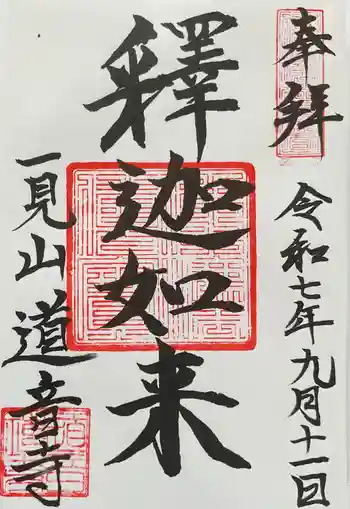 奉拝
令和七年九月十一日
釋迦如来
一見山道音寺